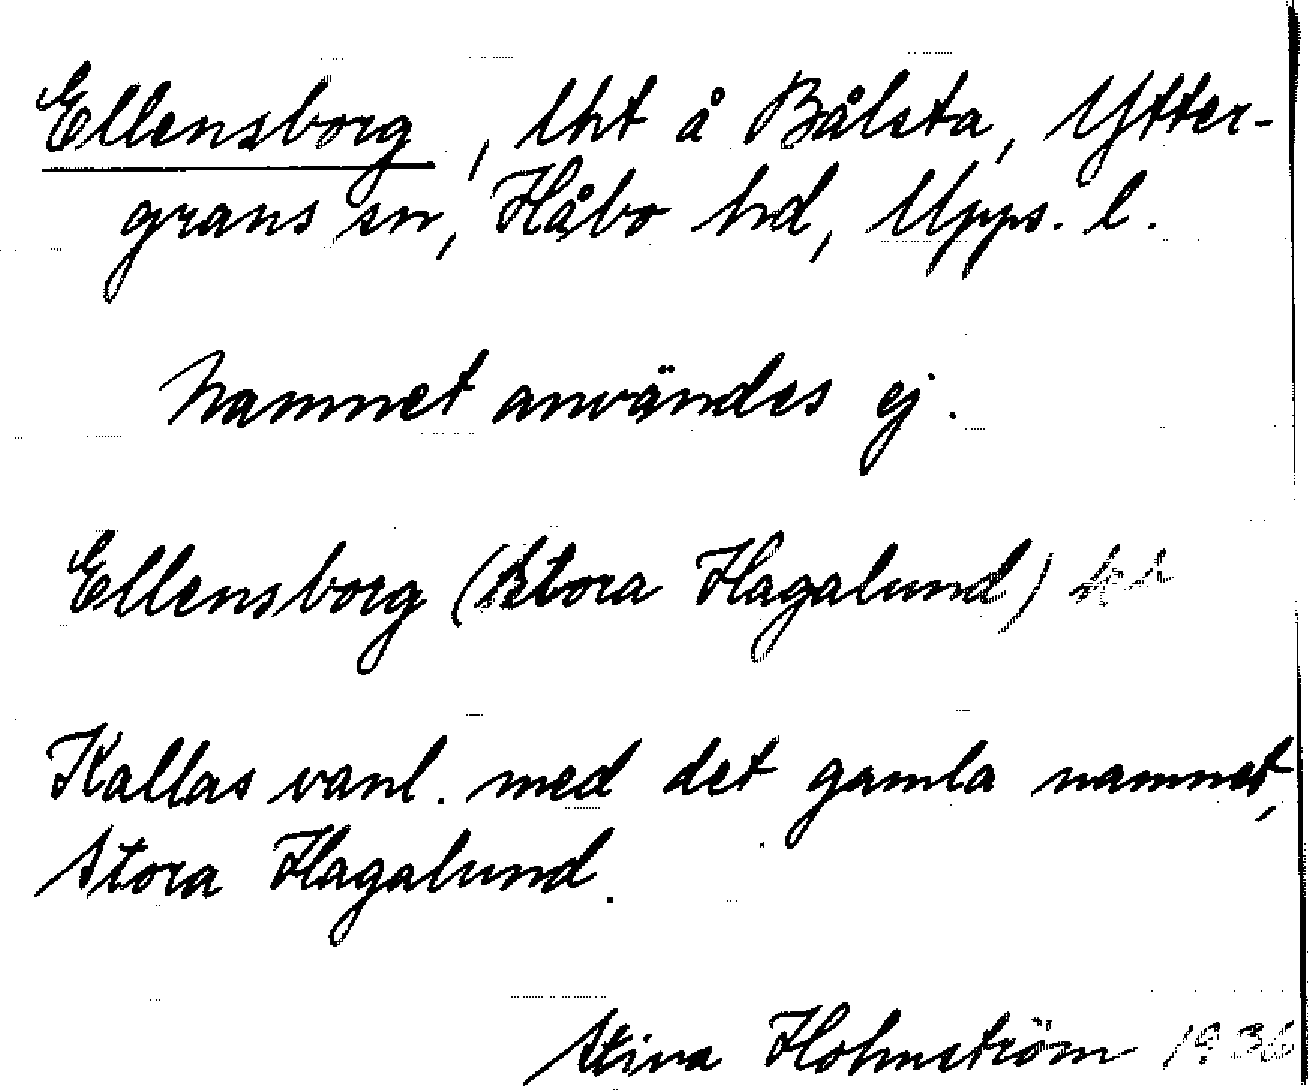 Ellensborg, lht å Bålsta, Ytter-
grans sn, Håbo hd, Upps. l.
Namnet användes ej.
Ellensborg (Stora Hagalund)
Kallas vanl. med det gamla namnet,
Stora Hagalund.
Stina Holmström 1936